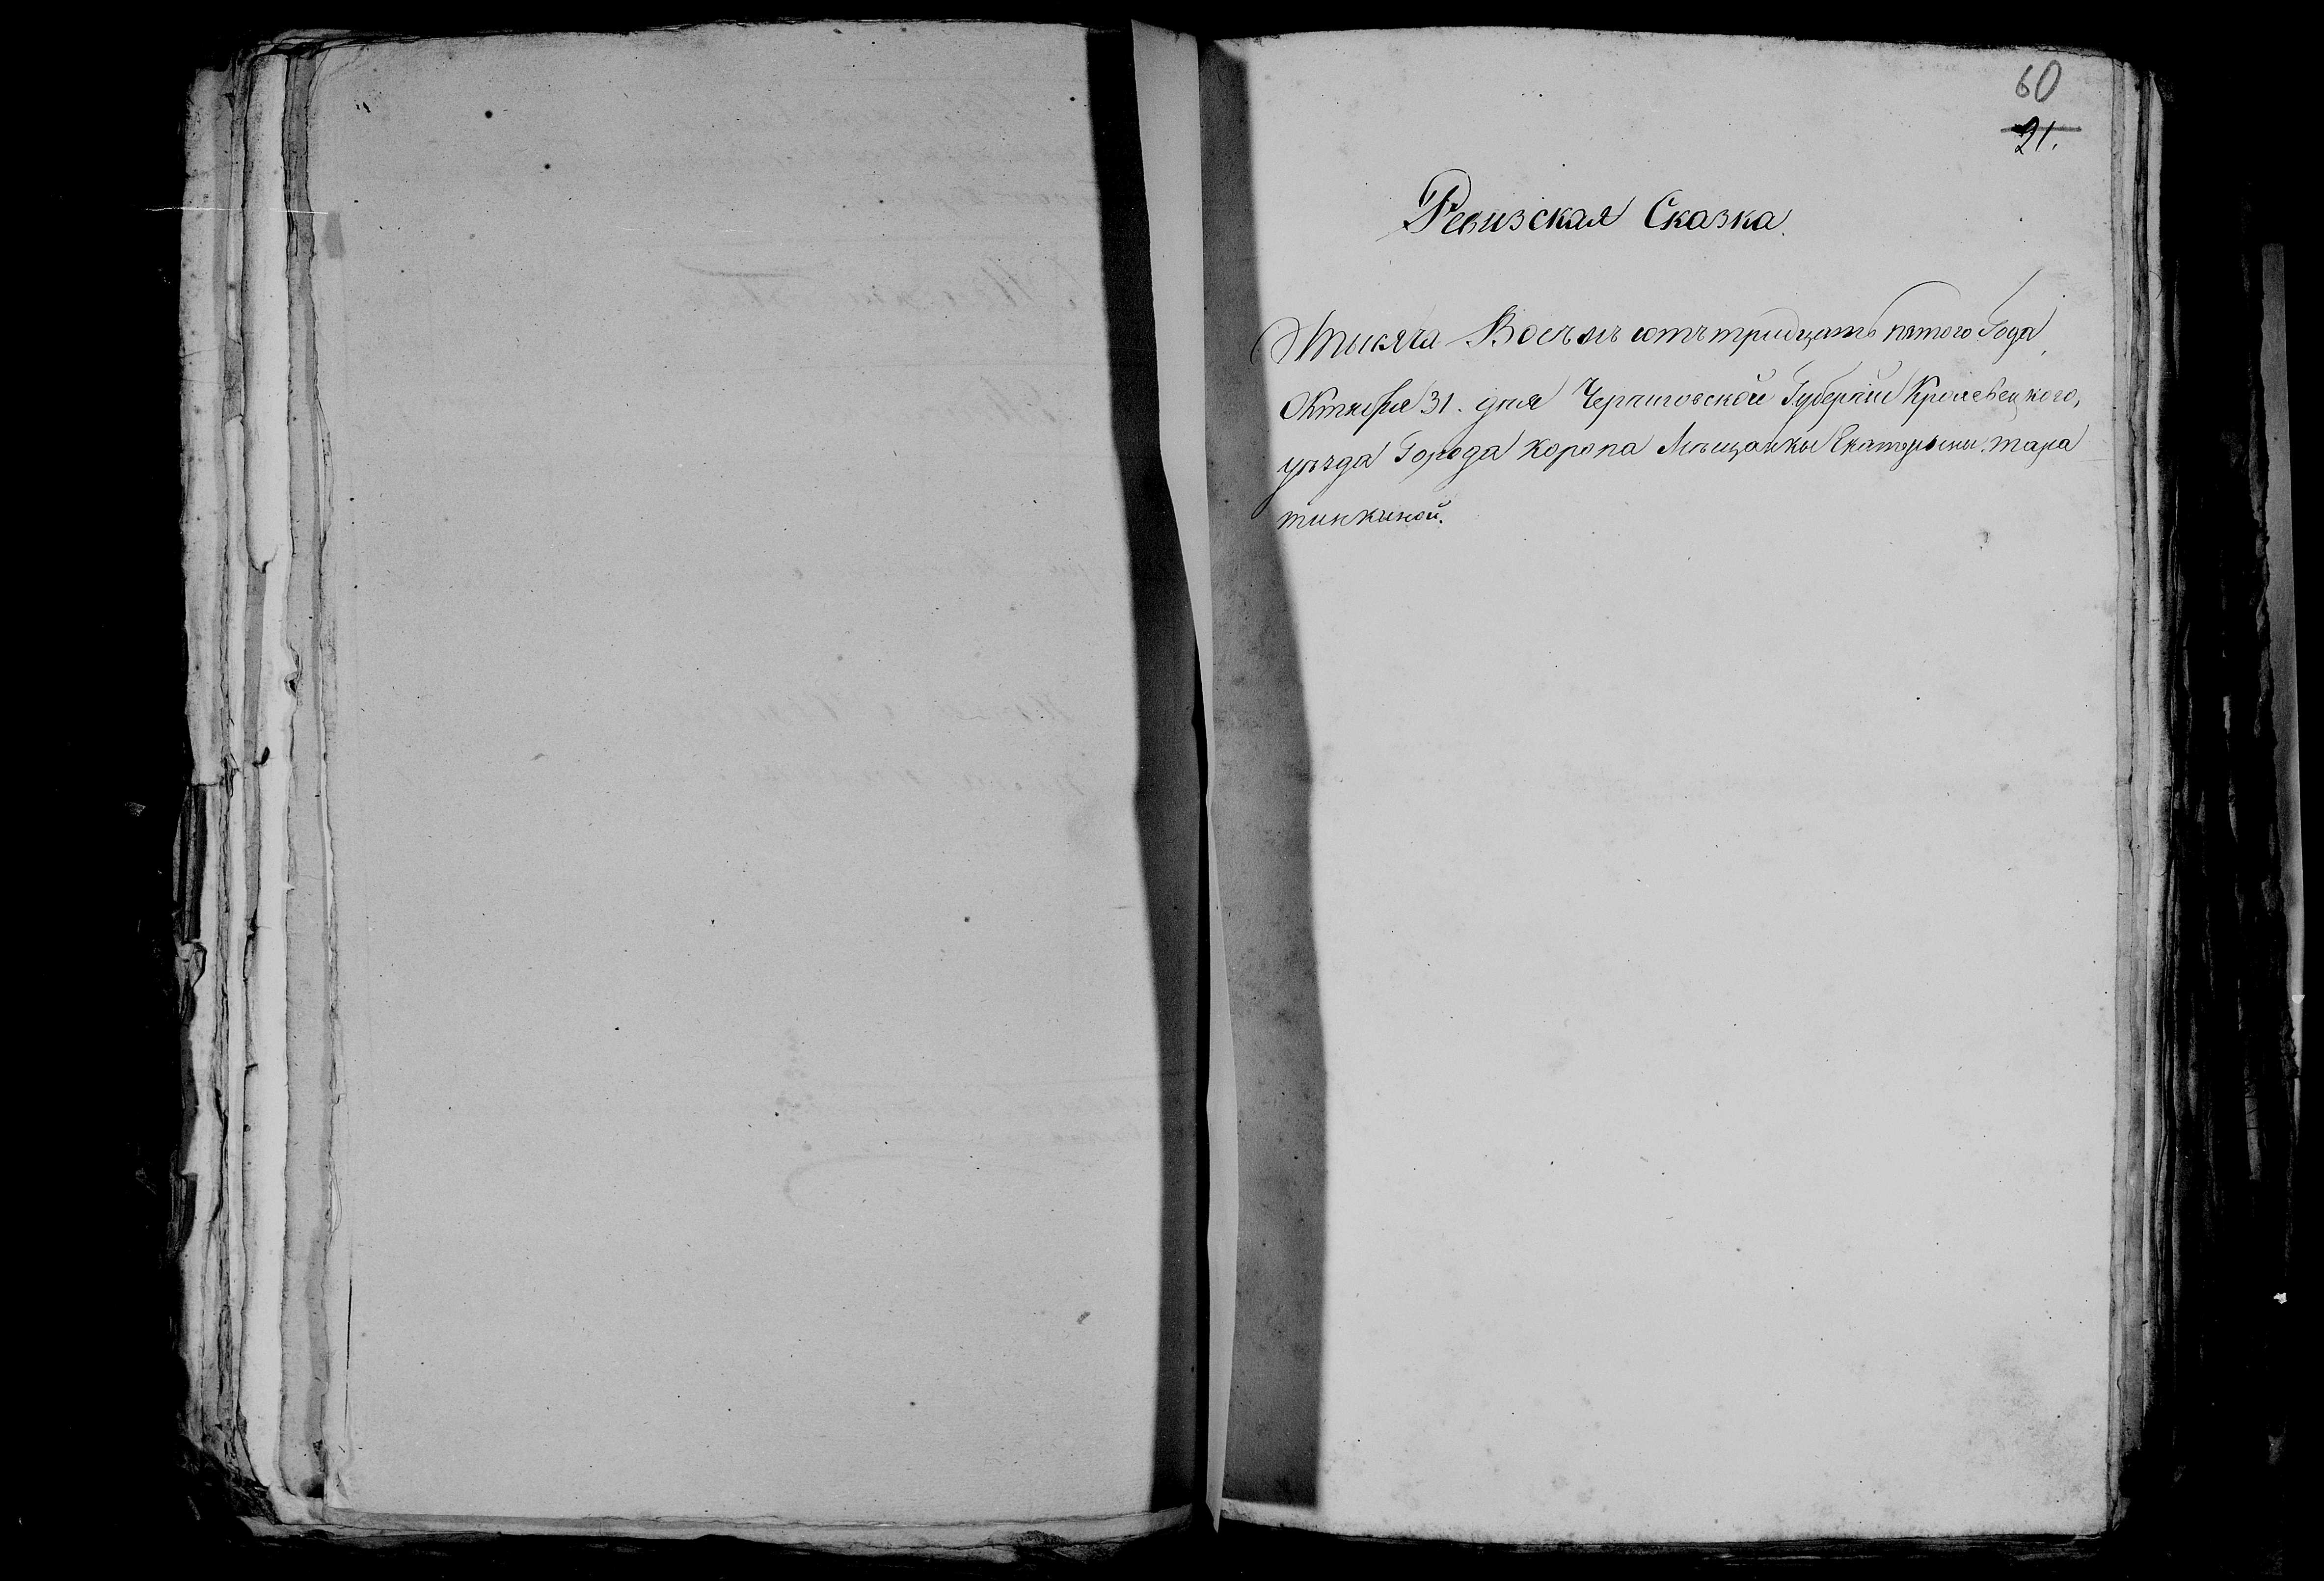 60
21.
Ревизская Сказка.
Тысяча Восемъ сотъ тридцать пятого Года
Октября 31. дня Черниговской Губернiи Кролевецкого,
уѣзда Города коропа Мѣщанки Екатерины тара
тинкиной.